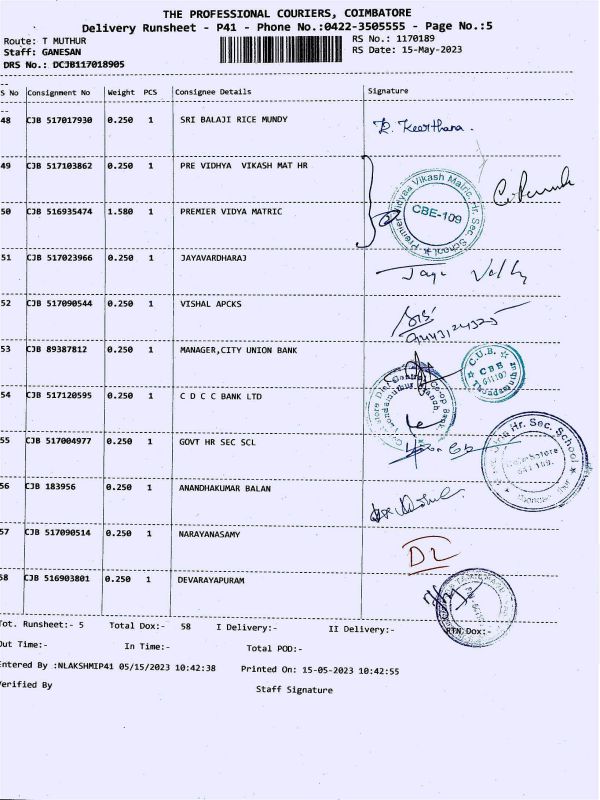 THE PROFESSIONAL COURIERS, COIMBATORE
Delivery Runsheet - P41 - Phone No.:0422-3505555 - Page No.:5
Route: T MUTHUR RS No.: 1170189
Staff: GANESAN RS Date: 15-May-2023
DRS No.: DCJB117018905
S No Consignment No Weight PCS Consignee Details Signature
48 CJB 517017930 0.250 1 SRI BALAJI RICE MUNDY R. Keerthana.
49 CJB 517103862 0.250 1 PRE VIDHYA VIKASH MAT HR
CBE-109
50 CJB 516935474 1.580 1 PREMIER VIDYA MATRIC
51 CJB 517023966 0.250 1 JAYAVARDHARAJ
52 CJB 517090544 0.250 1 VISHAL APCKS
53 CJB 89387812 0.250 1 MANAGER,CITY UNION BANK
C.U.B.
CBE
54 CJB 517120595 0.250 1 C D C C BANK LTD
55 CJB 517004977 0.250 1 GOVT HR SEC SCL
Hr. Sec. School
56 CJB 183956 0.250 1 ANANDHAKUMAR BALAN
57 CJB 517090514 0.250 1 NARAYANASAMY DL
58 CJB 516903801 0.250 1 DEVARAYAPURAM
Tot. Runsheet:- 5 Total Dox:- 58 I Delivery:- II Delivery:- RTN Dox:-
Out Time:- In Time:- Total POD:-
Entered By :NLAKSHMIP41 05/15/2023 10:42:38 Printed On: 15-05-2023 10:42:55
Verified By Staff Signature